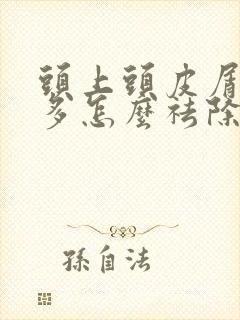 頭上頭皮屑
多怎麼祛除
孫自法